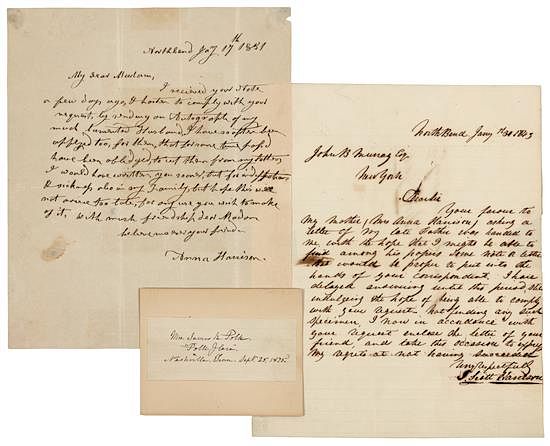 Northbend Jay 17th 1851
My dear Madam,
I received your Note
a few days ago, I hasten to comply with your
request, by sending an Autograph of my
much lamented Husband, I have so often been
applyed too, for them, that for some time past
have been obliedged, to cut them from my letters
I would have written, you sooner, but for indisposition
& sickness also in my Family, but hope this will
not arrive too late, for any use you wish to make
of it, with much friendship dear Madam
believe me ever your friend
Anna Harrison
North Bend Jany 30 1843
John B Murray Esq
New York
Dear Sir
Your favour to
My Mother (Mrs Anna Harrison) asking a
letter of my late Father was handed to
me with the hope that I might be able to
find among his papers some note or letter
that would be proper to put into the
hands of your correspondent. I have
delayed answering until this period,
indulging the hope of being able to comply
with your request. Not finding any such
specimen, I now in accordance with
your request enclose the letter of your
friend and take this occasion to express
My regrets at not having succeeded
Very respectfully
J Scott Harrison
Mrs James K Polk
Polk Place
Nashville, Tenn. Sept 25, 1875.